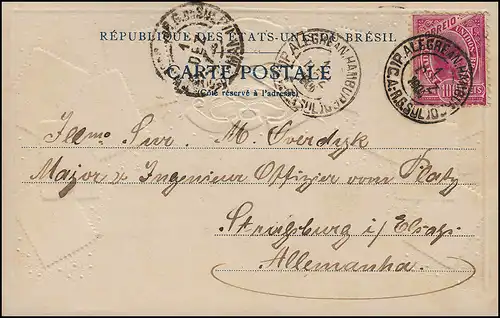 RÉPUBLIQUE DES ÉTATS-UNIS DU BRÉSIL
CARTE POSTALE
(Côté réservé à l'adresse)
CORREIO
100 REIS
P. ALEGRE N. HAMBURGO
(R.G. SUL)
Illmo Snr. M. Overdyk
Major & Ingenieur Offizier vom Platz
Strassburg i/Elsass
Allemanha.